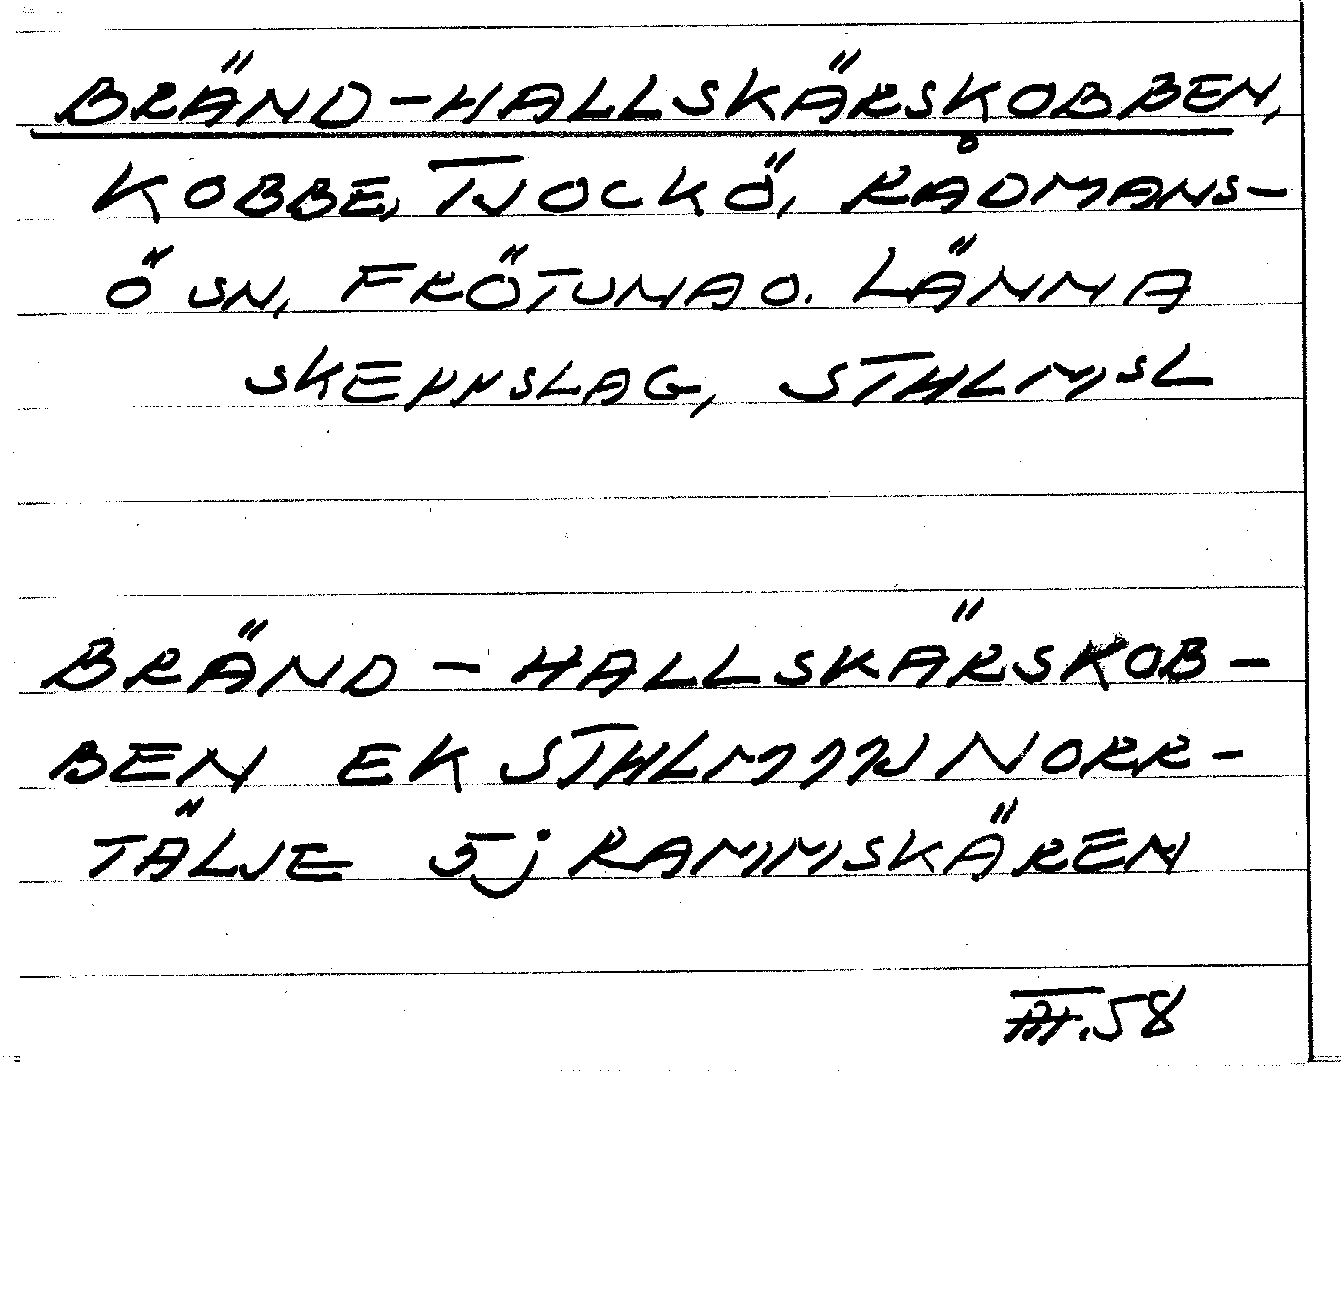 BRÄND-HALLSKÄRSKOBBEN,
KOBBE, TJOCKÖ, RÅDMANS-
Ö SN, FRÖTUNA O. LÄNNA
SKEPPSLAG, STHLMSL
BRÄND-HALLSKÄRSKOB-
BEN EK STHLM NORR-
TÄLJE 5j RAMMSKÄREN
58